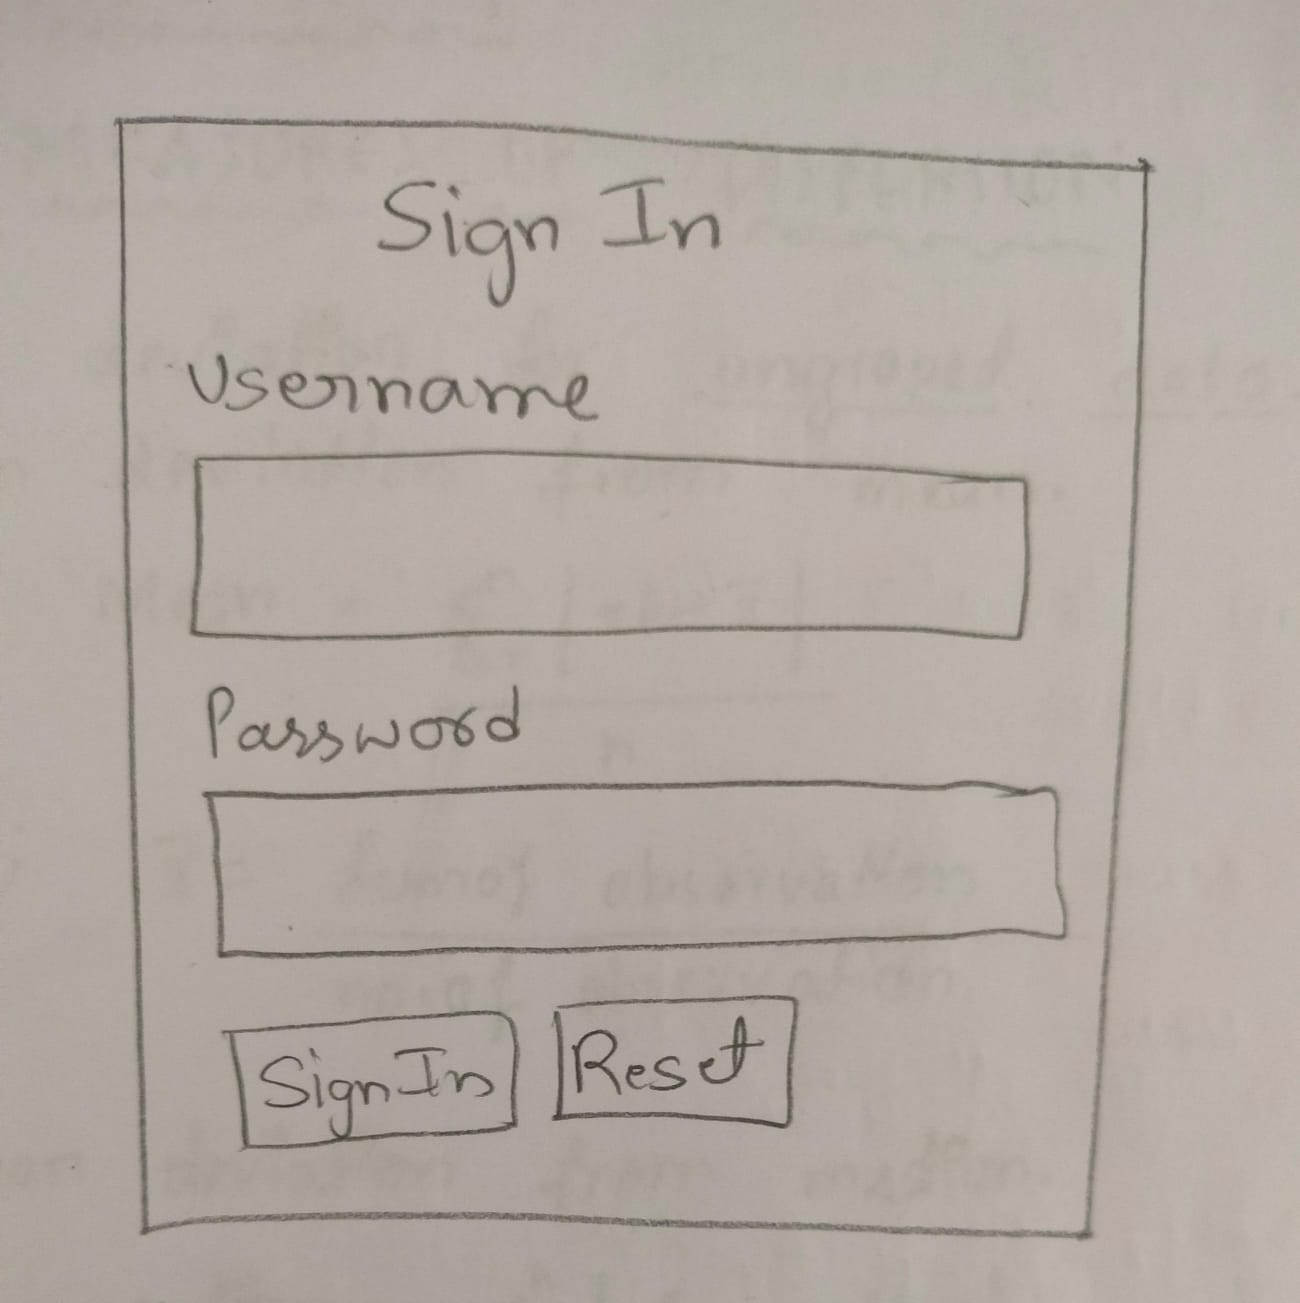 Sign In
Username
Password
Sign In
Reset